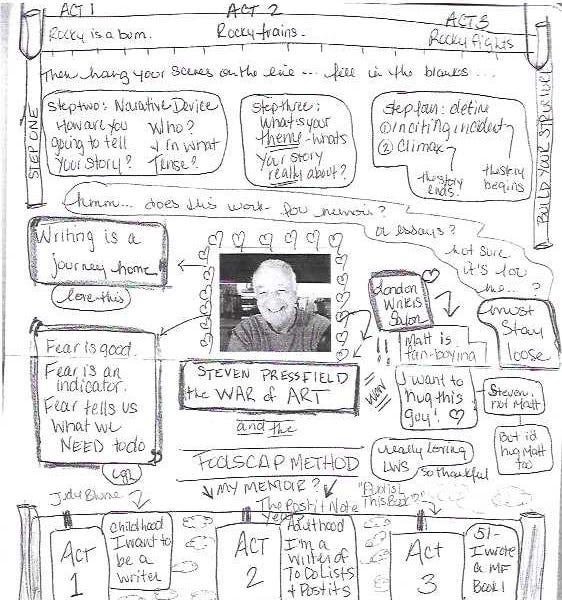 ACT 1
ACT 2
ACT 3
Rocky is a bum.
Rocky trains.
Rocky fights
Then hang your scenes on the line... fill in the blanks...
STEP ONE
BUILD YOUR STRUCTURE
step two: Narative Device
How are you
going to tell
your story?
Who?
in what
Tense?
step three:
What is your
theme - whats
your story
really about?
step four: define
① inciting incident
② Climax
the story
ends.
the story
begins
hmm... does this work for memoir?
or essays?
not sure
it's for
me... ?
must
stay
loose
Writing is a
journey home
love this
Fear is good.
Fear is an
indicator.
Fear tells us
what we
NEED to do
London
Writers
Salon
!!
Matt is
fan-boying
STEVEN PRESSFIELD
the WAR of ART
I want to
hug this
guy! ♡
Steven.
not Matt
But i'd
hug Matt
too
really loving
LWS
so thankful
and the
FOOLSCAP METHOD
MY MEMOIR?
Judy Blume
The Post it Note
Years
"Publish
This Book?"
ACT
1
Childhood
I want to
be a
writer
ACT
2
Adulthood
I'm a
writer of
To Do Lists
& Post its
Act
3
51-
I wrote
a MF
Book!